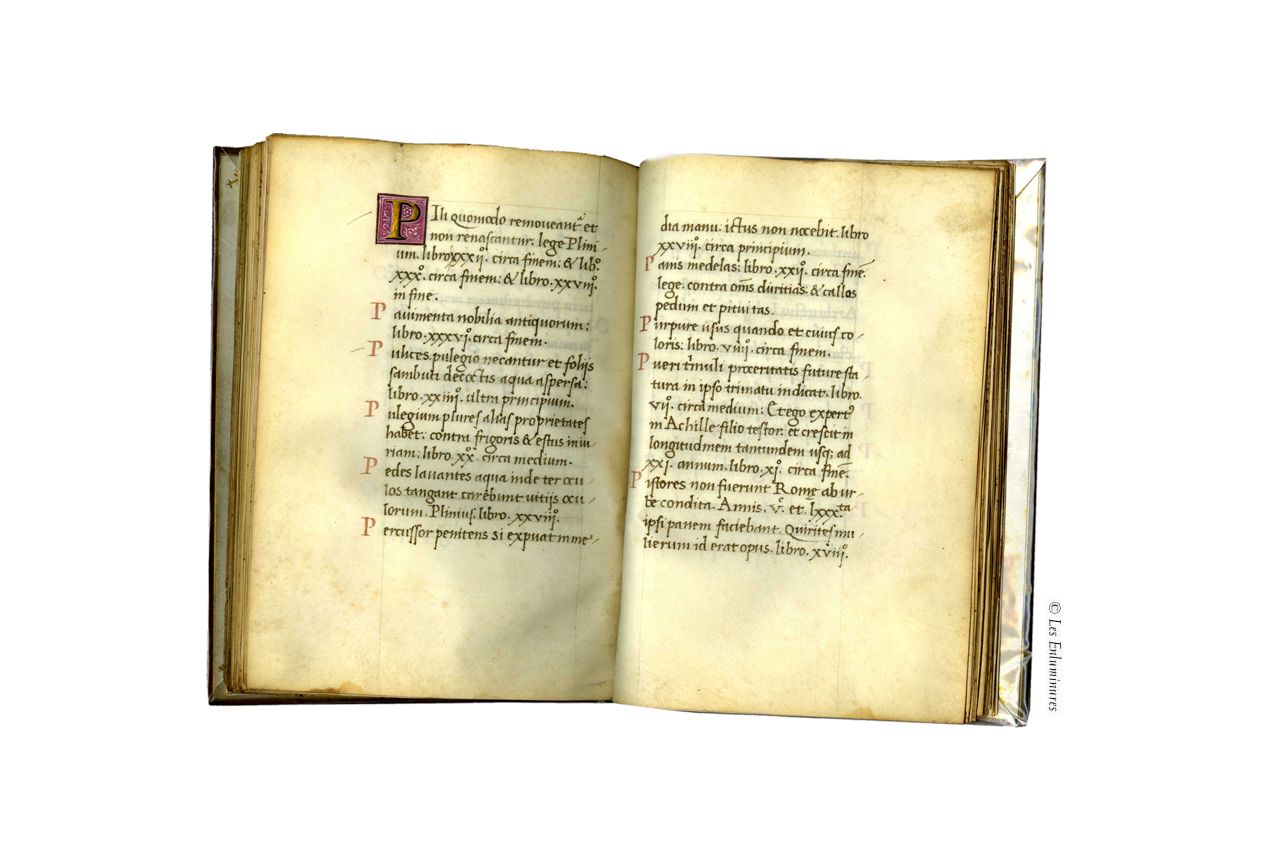 Pili quomodo remoueant̃ et
non renascantur. lege Plini-
um. libro xxxijº. circa finem: & libº.
xxxº. circa finem: & libro. xxviijº.
in fine.
Pauimenta nobilia antiquorum:
libro. xxxvjº. circa finem.
Pulices pulegio necantur et foliis
sambuci decoctis aqua aspersa:
libro. xxiiijº. ultra principium.
Pulegium plures alias proprietates
habet. contra frigoris & estus iniu-
riam: libro. xxº. circa medium.
Pedes lauantes aqua inde ter ocu-
los tangant carebunt uitijs ocu-
lorum. Plinius. libro. xxviijº.
Percussor penitens si expuat in me-
dia manu. ictus non nocebit. libro
xxviijº. circa principium.
Panis medelas: libro. xxijº. circa finẽ.
lege. contra om̃s duritias. & callos
pedum et pituitas.
Purpure usus quando et cuius co-
loris: libro. viiijº. circa finem.
Pueri proceritatis future sta-
tura in ipso trimatu indicat. libro.
vijº. circa medium: Et ego expert9
in Achille filio testor. et crescit in
longitudinem tantundem usq; ad
xxj. annum. libro. xjº. circa finẽ.
Pistores non fuerunt Romę ab ur-
be condita. Annis. vº. et. lxxxta
ipsi panem faciebant. Quirites mu-
lierum id erat opus. libro. xviijº.
© Les Enluminures